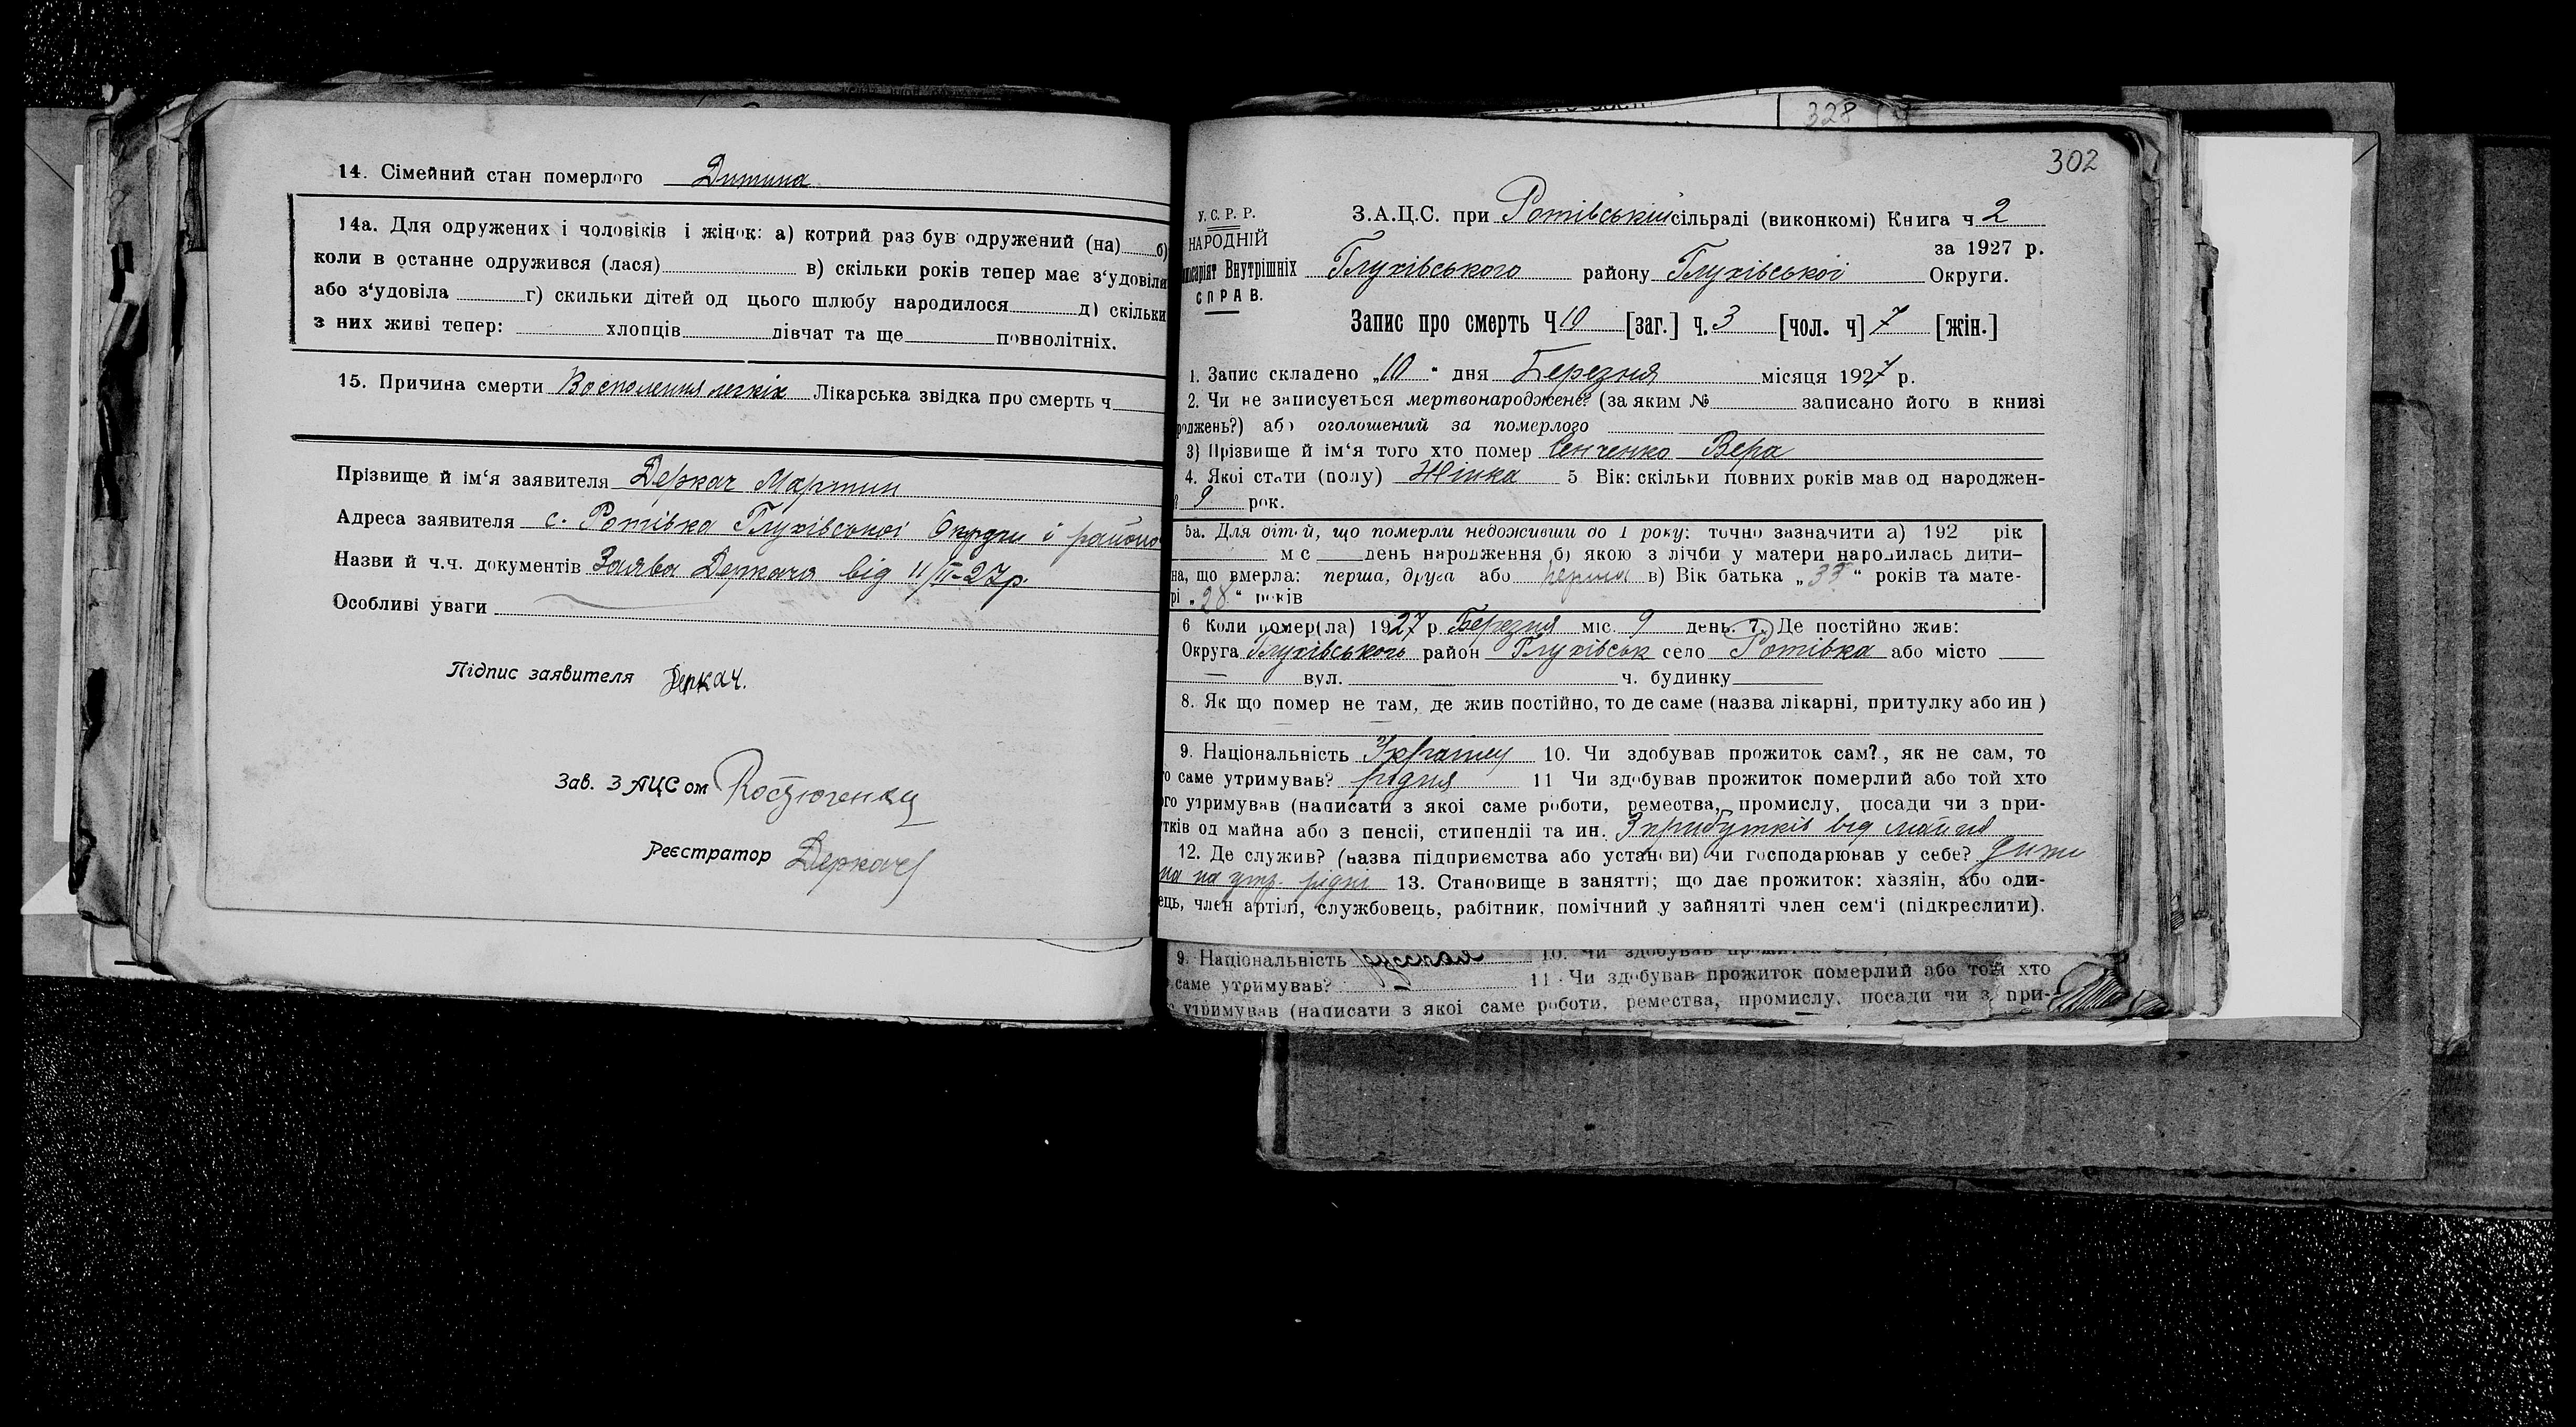 14. Сімейний стан померлого Дитина
14а. Для одружених і чоловіків і жінок: а) котрий раз був одружений (на) б)
коли в останне одружився (лася) в) скільки років тепер має з‘удовіли
або з‘удовіла г) скильки дітей од цього шлюбу народилося д) скільки
з них живі тепер: хлопців дівчат та ще повнолітніх.
15. Причина смерти Воспо­ления легкіх Лікарська звідка про смерть ч
Прізвище й ім‘я заявителя Деркач Мартин
Адреса заявителя с. Ротівка Глухівської Округи і району
Назви й ч.ч. документів Заява Деркача від 11/II-27р.
Особливі уваги
Підпис заявителя Деркач.
Зав. ЗАЦСом
Реєстратор Деркач
328
302
У. С. Р. Р.
НАРОДНІЙ
Внутрішніх
СПРАВ.
З.А.Ц.С. при Ротівській сільраді (виконкомі) Книга ч 2
за 1927 р.
Глухівського району Глухівської Округи.
Запис про смерть Ч 10 [заг.] ч. 3 [чол. ч] 7 [жін.]
1. Запис складено „10“ дня Березня місяця 1927 р.
2. Чи не записується мертвонароджене? (за яким № записано його в книзі
роджень?) або оголошений за померлого
3) Прізвище й ім‘я того хто помер Сенченко Вера
4. Якої стати (полу) Жінка 5 Вік: скільки повних років мав од народжен-
9 рок.
5а. Для дітей, що померли недоживши до 1 року: точно зазначити а) 192 рік
м с день народження б) якою з лічби у матери народилась дити-
на, що вмерла: перша, друга або перша в) Вік батька „33“ років та мате-
рі „28“ років
6 Коли помер(ла) 1927 р. Березня міс. 9 день. 7. Де постійно жив:
Округа Глухівського район Глухівськ село Ротівка або місто
вул. ч. будинку
8. Як що помер не там, де жив постійно, то де саме (назва лікарні, притулку або ин )
9. Національність 10. Чи здобував прожиток сам?, як не сам, то
го саме утримував? рідня 11 Чи здобував прожиток померлий або той хто
ого утримував (написати з якої саме роботи, ремества, промислу, посади чи з при-
тків од майна або з пенсії, стипендії та ин. З прибутків від майна
12. Де служив? (назва підприємства або установи) чи господарював у себе? дити
на на утр. рідні 13. Становище в занятті; що дає прожиток: хазяін, або оди-
ець, член артілі, службовець, рабітник, помічний у зайнятті член сем‘і (підкреслити).
9. Національність 10. Чи здобував
саме утримував? 11 Чи здобував прожиток померлий або той хто
утримував (написати з якої саме роботи, ремества, промислу, посади чи з при-